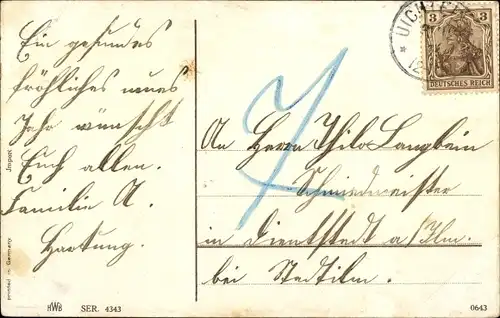 Ein gesundes
fröhliches neues
Jahr wünscht
Euch allen.
Familie A.
Hartung.
An Herrn Thilo Langbein
Schmiedmeister
in Dienstedt a/Ilm.
bei Stadtilm.
7
3 3
DEUTSCHES REICH
Import
printed in Germany
RWB SER. 4343
0643